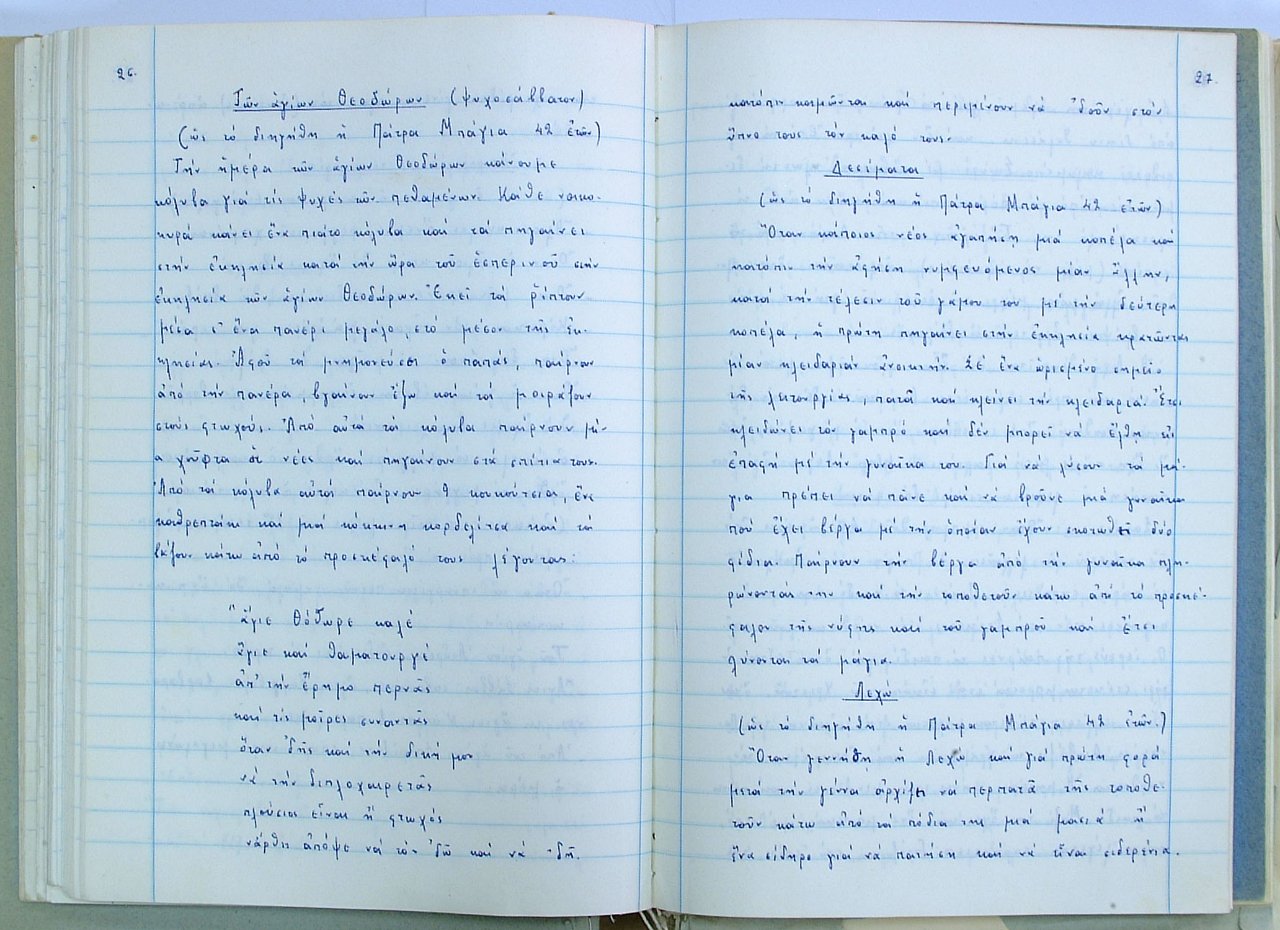 26.
Τῶν ἁγίων Θεοδώρων (ψυχοσάββατον)
(ὡς τό διηγήθη ἡ Πάτρα Μπάγια 42 ἐτῶν)
Τήν ἡμέρα τῶν ἁγίων Θεοδώρων κάνουμε
κόλυβα γιά τίς ψυχές τῶν πεθαμένων. Κάθε νοικο-
κυρά κάνει ἕνα πιάτο κόλυβα καί τά πηγαίνει
στήν ἐκκλησία κατά τήν ὥρα τοῦ ἑσπερινοῦ στήν
ἐκκλησία τῶν ἁγίων Θεοδώρων. Ἐκεῖ τά ρίπτουν
μέσα σ' ἕνα πανέρι μεγάλο, στό μέσον τῆς ἐκ-
κλησίας. Ἀφοῦ τά μνημονεύσει ὁ παπάς, παίρνουν
ἀπό τήν πανέρα, βγαίνουν ἔξω καί τά μοιράζουν
στούς φτωχούς. Ἀπό αὐτά τά κόλυβα παίρνουν μί-
α χοῦφτα οἱ νέες καί πηγαίνουν στά σπίτια τους.
Ἀπό τά κόλυβα αὐτά παίρνουν 9 κουκούτσια, ἕνα
καθρεπτάκι καί μιά κόκκινη κορδελίτσα καί τά
βάζουν κάτω ἀπό τό προσκέφαλό τους λέγοντας:
"ἅγιε Θόδωρε καλέ
ἅγιε καί θαματουργέ
ἀπ' τήν ἔρημο περνᾶς
καί τίς μοῖρες συναντᾶς
ὅταν ἰδῆς καί τήν δική μου
νά τήν διπλοχαιρετᾶς
πλούσιος εἶναι ἤ φτωχός
νάρθη ἀπόψε νά τόν ἰδῶ καί νά ἰδῆ.
27.
κατόπιν κοιμῶνται καί περιμένουν νά ἰδοῦν στόν
ὕπνο τους τόν καλό τους.
Δεσίματα
(ὡς τό διηγήθη ἡ Πάτρα Μπάγια 42 ἐτῶν)
Ὅταν κάποιος νέος ἀγαπήση μιά κοπέλα καί
κατόπιν τήν ἀφήση νυμφευόμενος μίαν ἄλλην,
κατά τήν τέλεσιν τοῦ γάμου του μέ τήν δεύτερη
κοπέλα, ἡ πρώτη πηγαίνει στήν ἐκκλησία κρατῶντας
μίαν κλειδαριάν ἀνοικτήν. Σέ ἕνα ὡρισμένο σημεῖο
τῆς λειτουργίας, πατᾶ καί κλείνει τήν κλειδαριά. Ἔτσι
κλειδώνει τόν γαμπρό καί δέν μπορεῖ νά ἔλθη εἰς
ἐπαφή μέ τήν γυναῖκα του. Γιά νά λύσουν τά μά-
για πρέπει νά πᾶνε καί νά βροῦνε μιά γυναῖκα
πού ἔχει βέργα μέ τήν ὁποίαν ἔχουν σκοτωθεῖ δύο
φίδια. Παίρνουν τήν βέργα ἀπό τήν γυναῖκα πλη-
ρώνοντάς την καί τήν τοποθετοῦν κάτω ἀπό τό προσκέ-
φαλον τῆς νύφης καί τοῦ γαμπροῦ καί ἔτσι
λύνονται τά μάγια.
Λεχώ
(ὡς τό διηγήθη ἡ Πάτρα Μπάγια 42 ἐτῶν.)
Ὅταν γεννήθη ἡ Λεχώ καί γιά πρώτη φορά
μετά τήν γέννα ἀρχίζει νά περπατᾶ τῆς τοποθε-
τοῦν κάτω ἀπό τά πόδια της μιά μασιά ἤ
ἕνα σίδηρο γιά νά πατήση καί νά εἶναι σιδερένια.